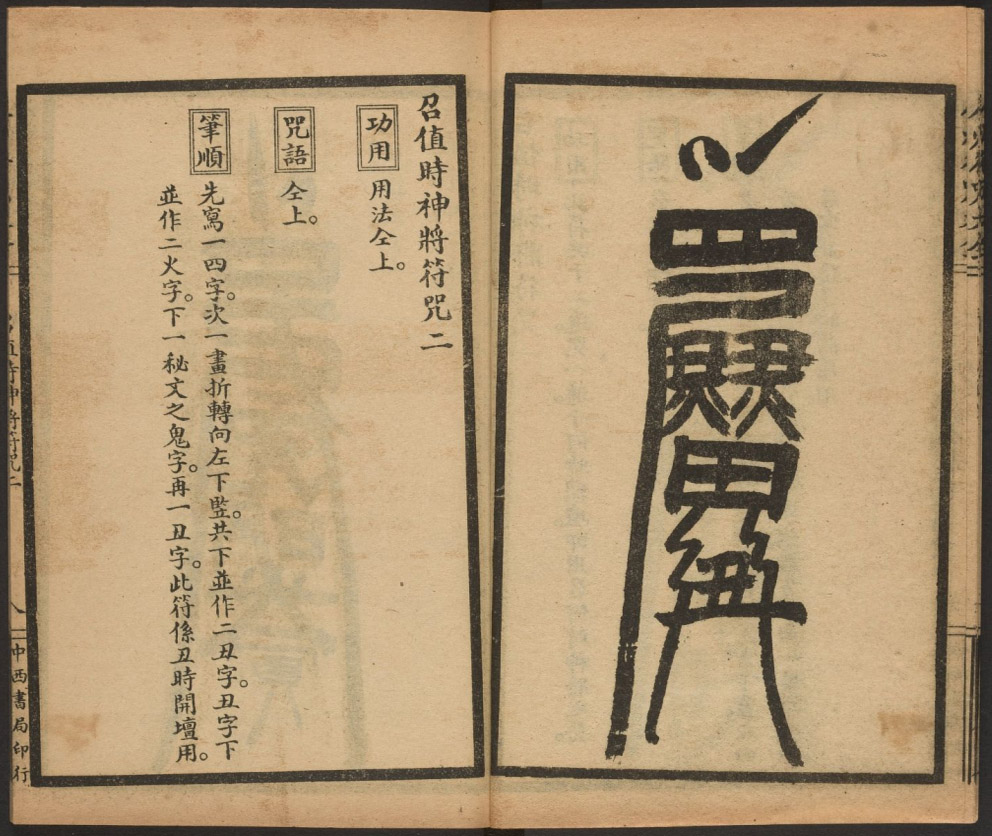 召值時神將符咒二
功用 用法仝上。
咒語 仝上。
筆順 先寫一四字。次一畫折轉向左下監。共下並作二丑字。丑字下
並作二火字。下一秘文之鬼字。再一丑字。此符係丑時開壇用。
中西書局印行